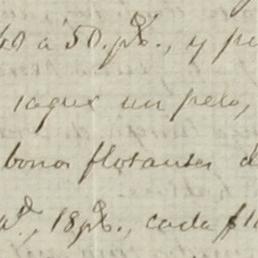 40 a 50. p%., y pe
saque un pelo,
bonos flotantes d
18 p%., cada fl